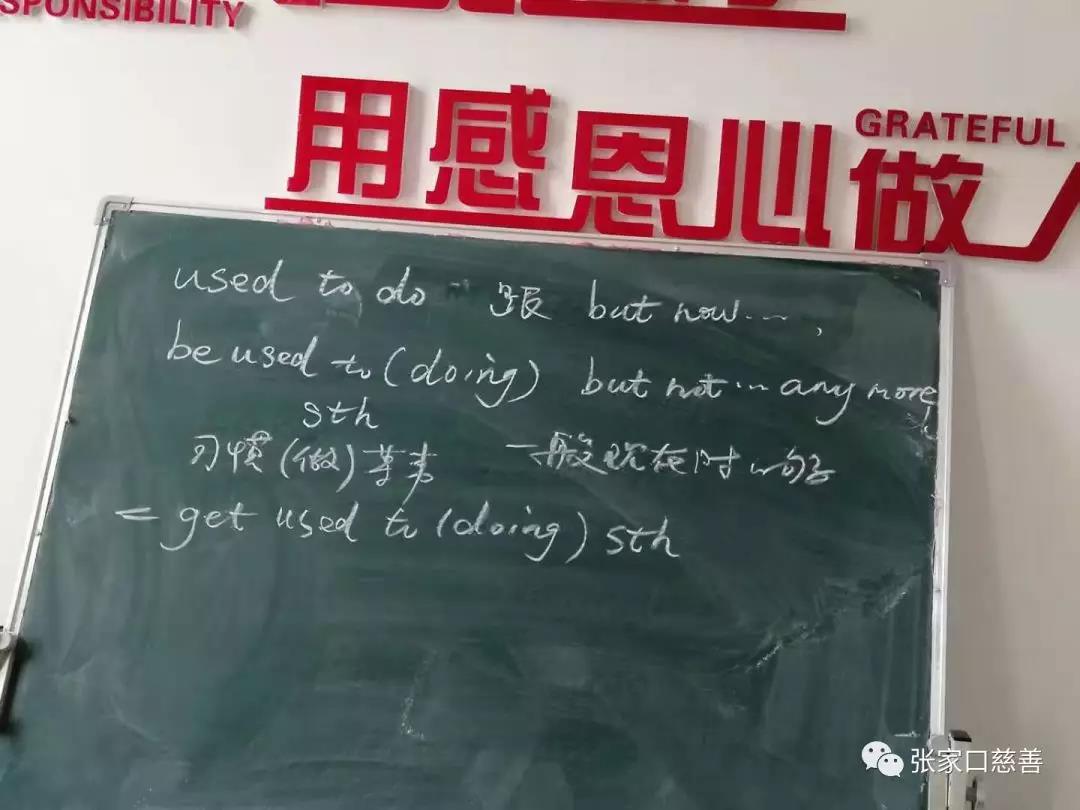 SPONSIBILITY
用感恩心做
GRATEFUL
used to do 张 but now…,
be used to (doing) but not … any more
sth
习惯(做)某事 一般现在时的句子
= get used to (doing) sth
张家口慈善